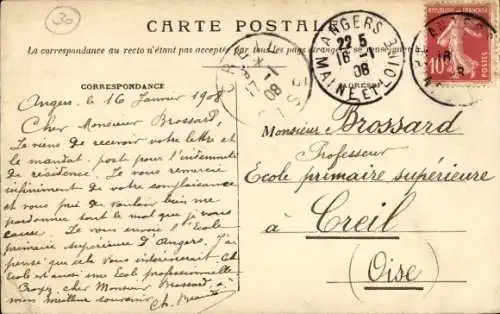 30
CARTE POSTALE
La correspondance au recto n'étant pas acceptée par tous les pays étrangers, se renseigner
CORRESPONDANCE
ADRESSE
ANGERS
22 5
16-1
08
MAINE ET LOIRE
CREIL
OISE
10
POSTES
Angers, le 16 Janvier 1908
Cher Monsieur Brossard,
Je viens de recevoir votre lettre et
le mandat-poste pour l'indemnité
de résidence. Je vous remercie
infiniment de votre complaisance
et vous prie de vouloir bien me
pardonner tout le mal que je vous
cause. Je vous envoie l'Ecole
primaire supérieure d'Angers. J'ai
pensé que cela vous intéresserait. Cette
Ecole est aussi une Ecole professionnelle
Croyez, cher Monsieur Brossard, à
mon meilleur souvenir. Ch.
Monsieur Brossard
Professeur
Ecole primaire supérieure
à Creil
(Oise)